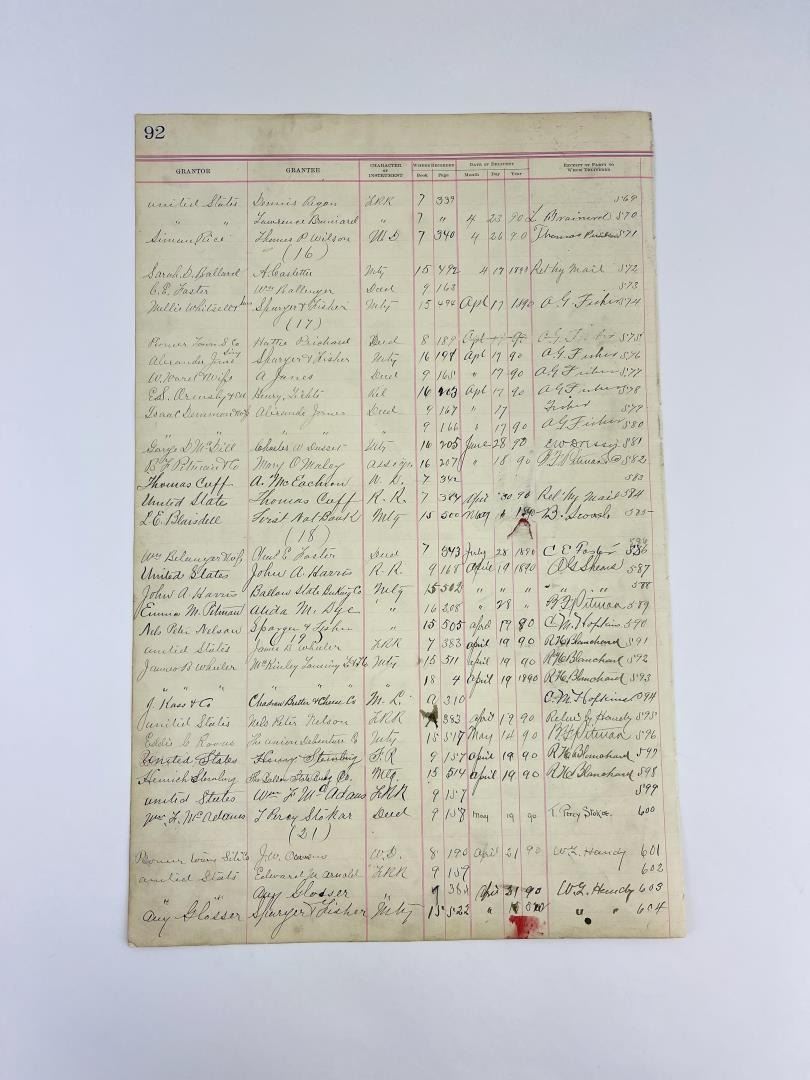 92
GRANTOR GRANTEE CHARACTER OF INSTRUMENT WHERE RECORDED Book Page DATE OF DELIVERY Month Day Year RECEIPT OF PARTY TO WHOM DELIVERED
United States Dennis Ryan F.R.R. 7 339 569
" " Lawrence Brainard " 7 " 4 23 90 L Brainerd 570
Simon Rice Thomas P. Wilson M D 7 340 4 26 90 Thomas 571
(16)
Sarah D. Ballard A. Castetter Mtg 15 492 4 17 1890 Ret by Mail 572
C.E. Foster Wm Ballenger Deed 9 163 573
Nellie Whitsell & Sparger & Fisher Mtg 15 494 Apl 17 1890 A G Fisher 574
(17)
Pioneer Town S Co Hattie Prichard Deed 8 189 Apl 17 90 A G Fisher 575
Alexander Sparger & Fisher Mtg 16 197 Apl 17 90 A G Fisher 576
W. Ward & Wife A Jones Deed 9 165 " 17 90 A G Fisher 577
E.S. Ormsby Henry Rel 16 203 Apl 17 90 A G Fisher 578
Isaac Alexande Jones Deed 9 167 " 17 Fisher 579
" " 9 166 " 17 90 A G Fisher 580
George D. McGill Charles W Dusset Mtg 16 205 June 28 90 581
B F Pitman & Co Mary O Maley Assign 16 207 " 18 90 B F Pitman & Co 582
Thomas Cuff A. McEachron W.D. 7 342 583
United State Thomas Cuff R.R. 7 384 April 30 90 Ret by Mail 584
L.E. Blaisdell First Nat Bank Mtg 15 500 May 6 1890 585
(18)
Wm Belanger & Wife Chas E Foster Deed 7 343 July 28 1890 C E Foster 586
United States John A Harris R.R. 9 168 April 19 1890 587
John A Harris Ballow State Banking Co Mtg 15 502 " " " " " 588
Emma M. Pitman Alida M. Dye " 16 208 " 28 " B F Pitman 589
Nels Peter Nelson Sparger & Fisher " 15 505 April 19 90 C. M. Hopkins 590
19
United States James B Wheeler F.R.R. 7 383 April 19 90 R H Blanchard 591
James B Wheeler McKinley Lanning L & T Co Mtg 15 511 April 19 90 R H Blanchard 592
" " " " " 18 4 April 19 1890 R H Blanchard 593
J. Kass & Co Chadron Butter & Cheese Co M. L. 310 C. M. Hopkins 594
United States Nels Peter Nelson F.R.R. 383 April 19 90 595
Eddie C The Union Debenture Co Mtg 15 517 May 14 90 B F Pitman 596
United States Henry Sternberg F. R 9 157 April 19 90 R H Blanchard 597
Heinrich The Ballow State Bnkg Co. Mtg. 15 514 April 19 90 R H Blanchard 598
United States Wm F McAdams F.R.R. 9 157 599
Wm F. McAdams T Percy Stokar Deed 9 158 May 19 90 T. Percy Stokar 600
(21)
Pioneer Town Site Co J. W. Owens W. D. 8 190 April 21 90 W F. Handy 601
United States Edward M Arnold F.R.R. 9 157 602
" Guy Glosser 7 384 April 21 90 W F. Handy 603
Guy Glosser Sparger & Fisher Mtg 15 522 " " " 604